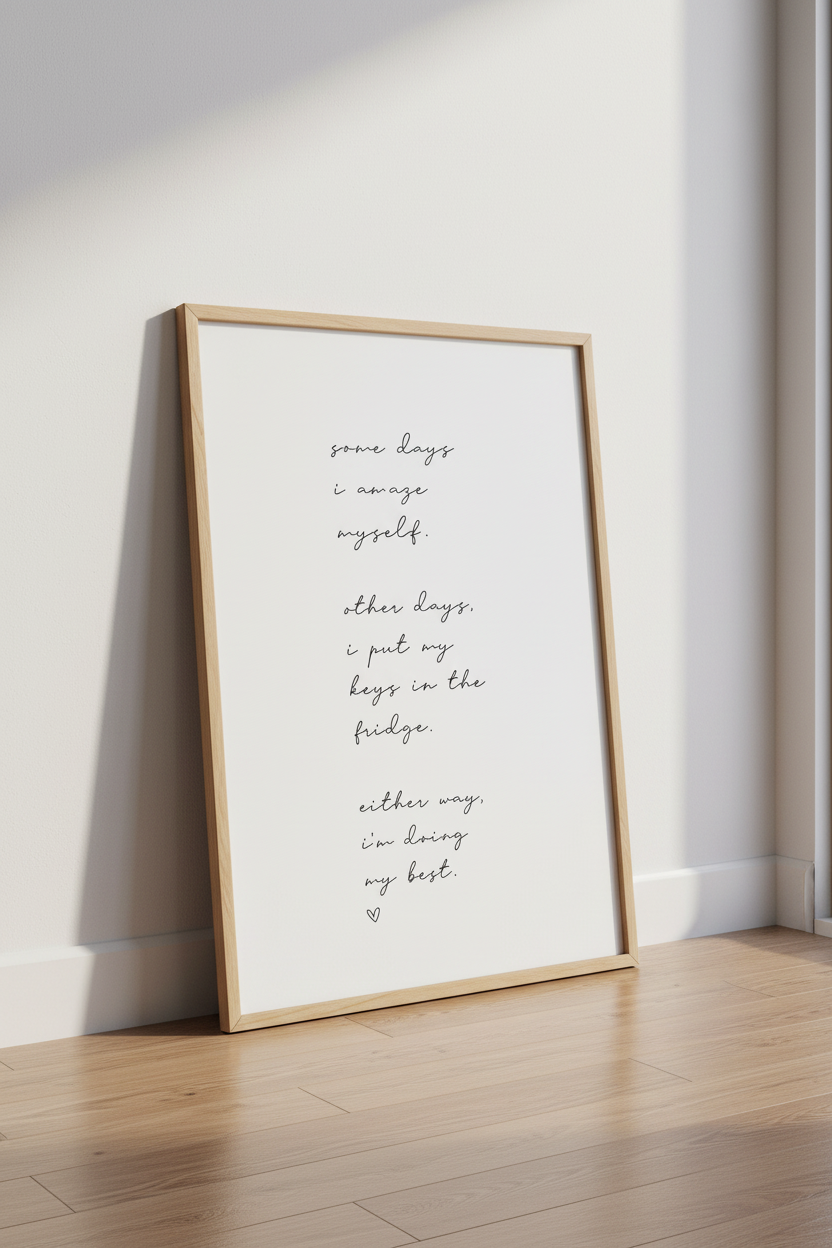 some days
i amaze
myself.
other days,
i put my
keys in the
fridge.
either way,
i'm doing
my best.
♡